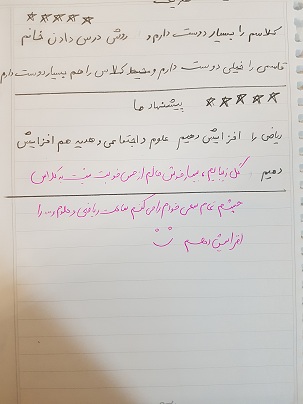 کلاسم را بسیار دوست دارم و روش درس دادن خانم
قاسمی را خیلی دوست دارم و محیط کلاس را هم بسیار دوست دارم
پیشنهاد ها
ریاضی را افزایش دهیم علوم و اجتماعی و هدیه هم افزایش
دهیم گل زیبایم، خیلی خوش حالم از حس خوبت نسبت به کلاس
چشم تمام سعی خودم را می کنم ساعت ریاضی و علوم و... را
افزایش دهم